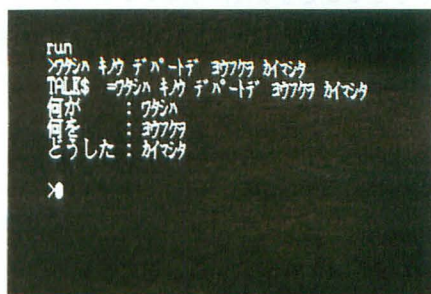 run
>ワタシハ キノウ デパートデ ヨウフクヲ カイマシタ
TALK$ =ワタシハ キノウ デパートデ ヨウフクヲ カイマシタ
何が : ワタシハ
何を : ヨウフクヲ
どうした : カイマシタ
>